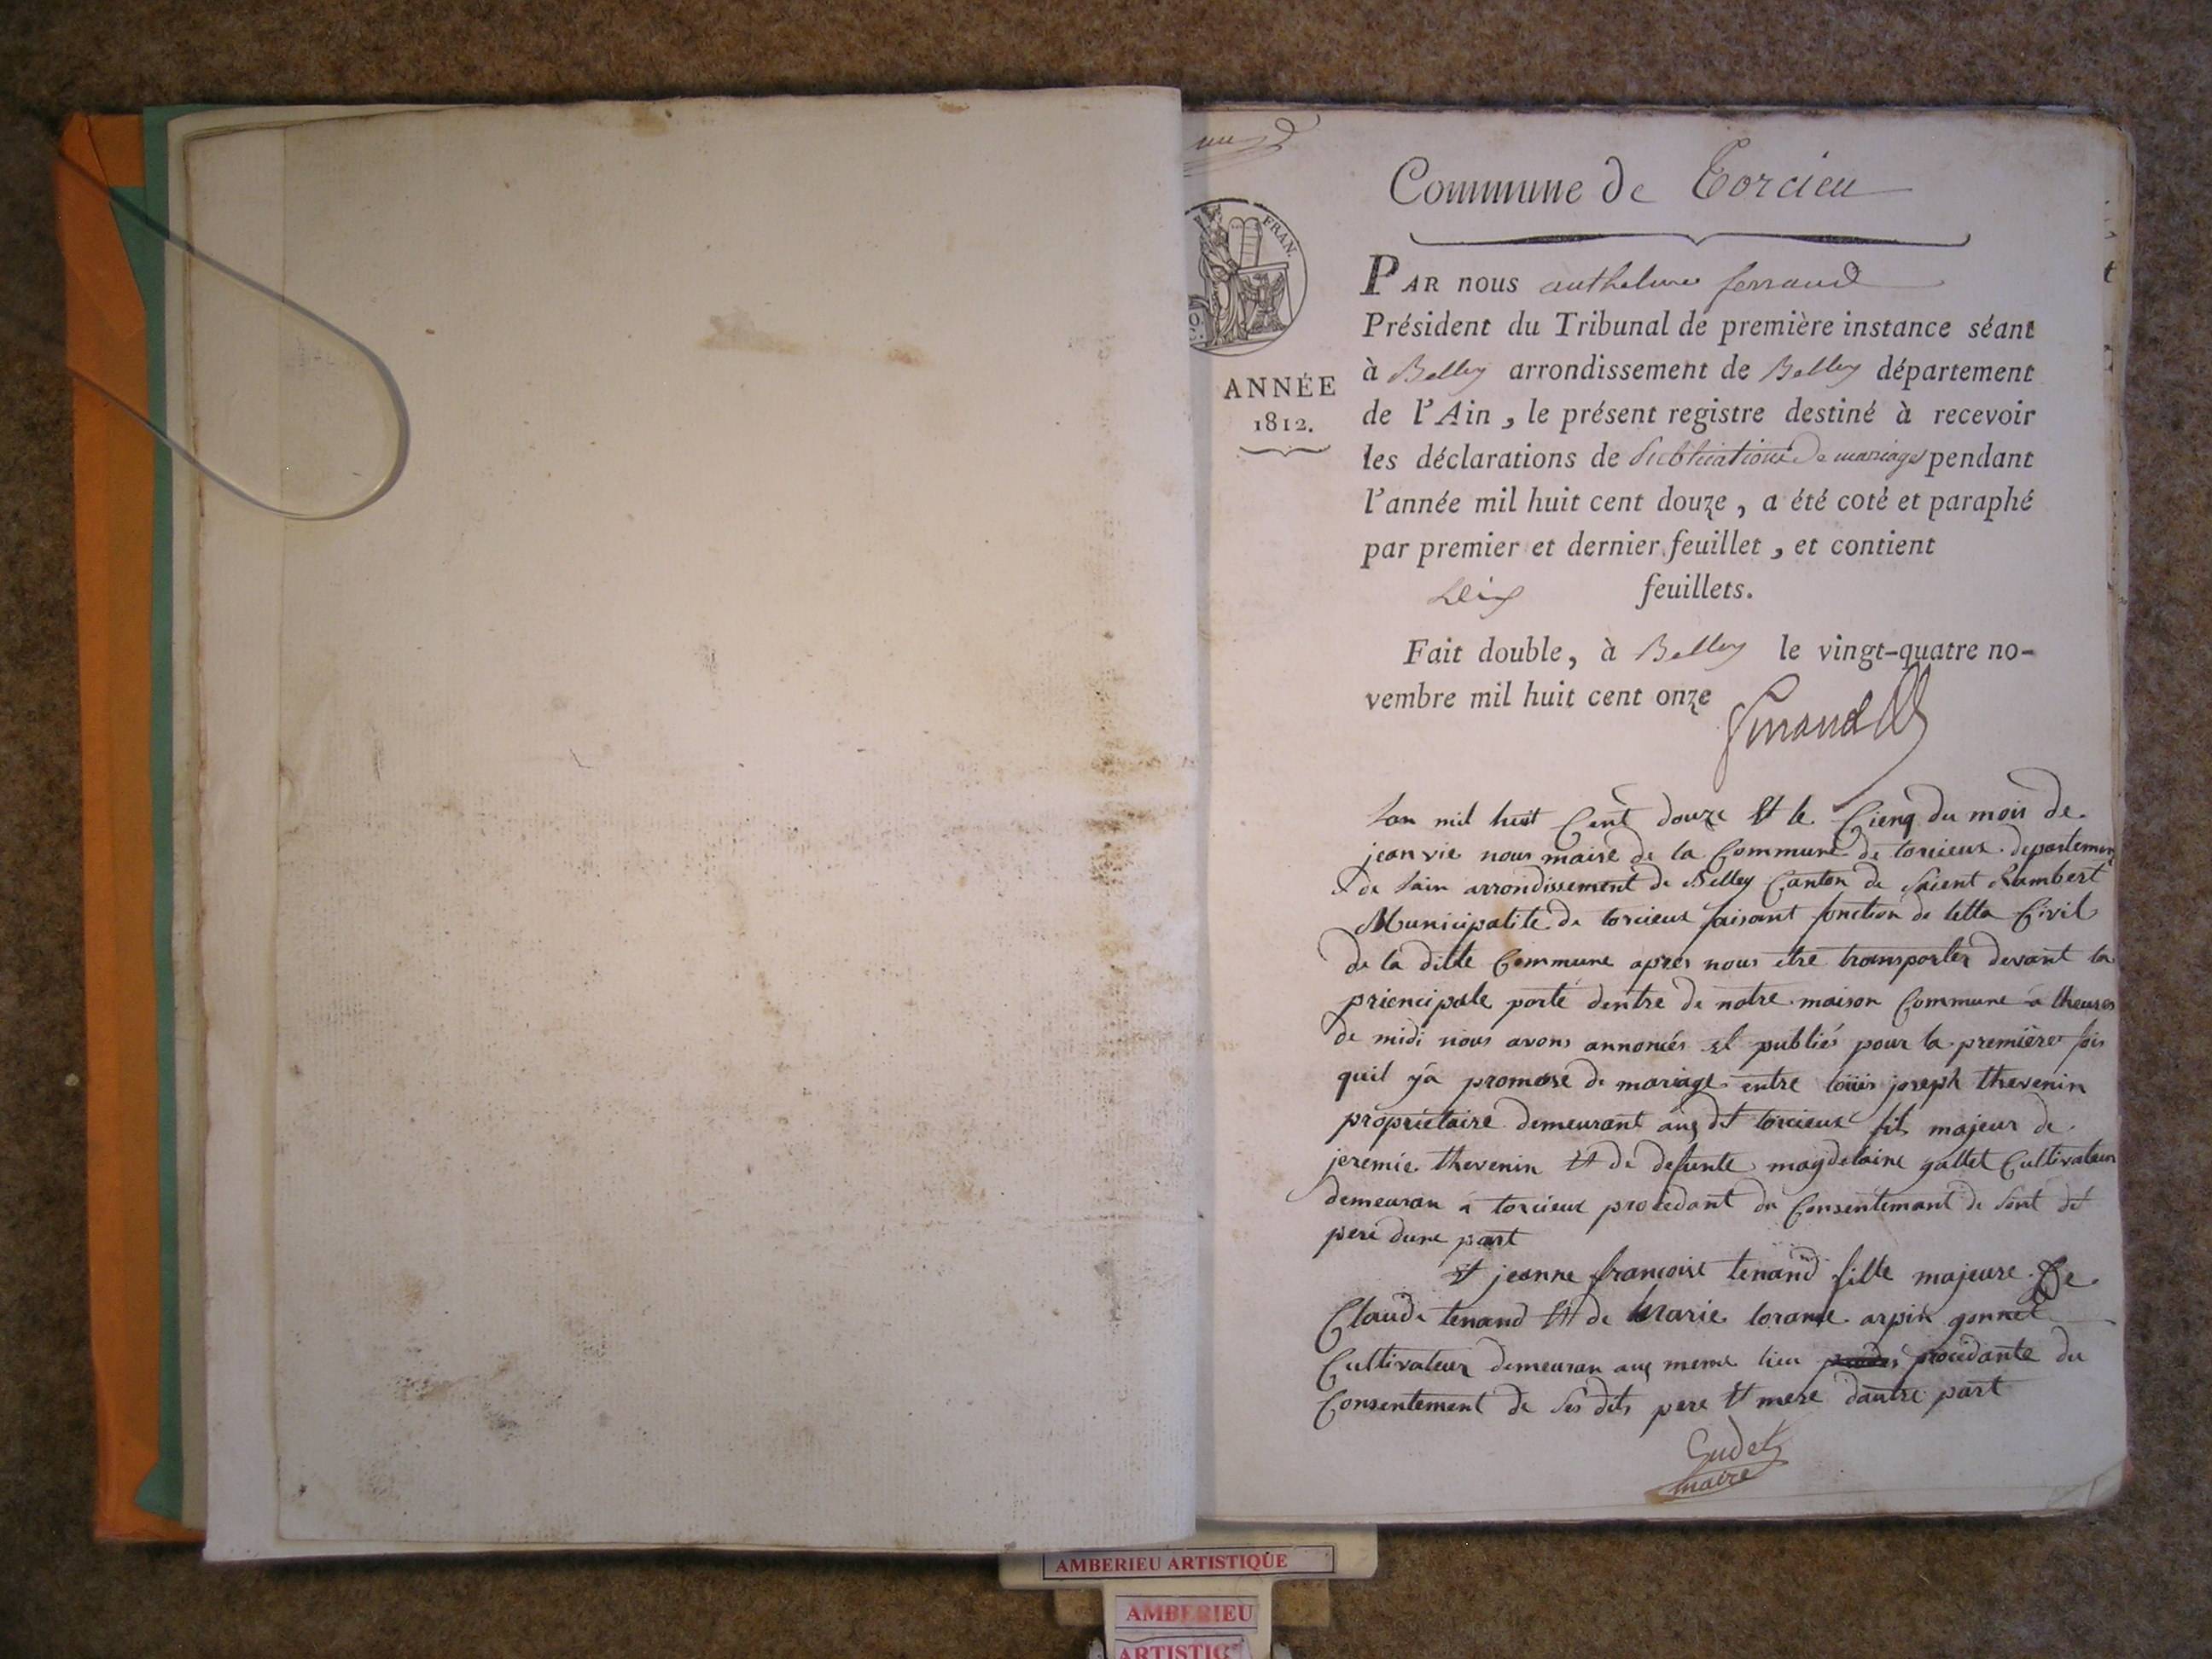 Commune de Torcieu
FRAN.
PAR nous anthelme ferrand
Président du Tribunal de première instance séant
à Belley arrondissement de Belley département
ANNÉE
1812.
de l'Ain, le présent registre destiné à recevoir
les déclarations de Publications de mariages pendant
l'année mil huit cent douze, a été coté et paraphé
par premier et dernier feuillet, et contient
feuillets.
Fait double, à Belley le vingt-quatre no-
vembre mil huit cent onze
Lan mil huit Cent douze et le Cienq du mois de
jeanvie nous maire de la Commune de torcieux departemen
de lain arrondissement de Belley Canton de Saient Rambert
Municipalité de torcieux faisant fonction de letta Civil
de la ditte Commune apres nous etre transporter devant la
priencipale porte dentre de notre maison Commune a lheures
de midi nous avons annoncés et publiés pour la premiere fois
quil y a promese de mariage entre louis joseph thevenin
proprietaire demeurant aux dit torcieux fils majeur de
jeremie thevenin et de defunte magdelaine gallet Cultivateur
demeuran a torcieux procedant du Consentemant de sont dit
pere dune part
et jeanne francoise tenand fille majeure De
Claude tenand et de Marie lorance arpin gonnet
Cultivateur demeuran aux meme lieu procedante du
Consentement de ses dits pere et mere dautre part
Gudet
maire
AMBERIEU ARTISTIQUE
AMBERIEU
ARTISTIQ